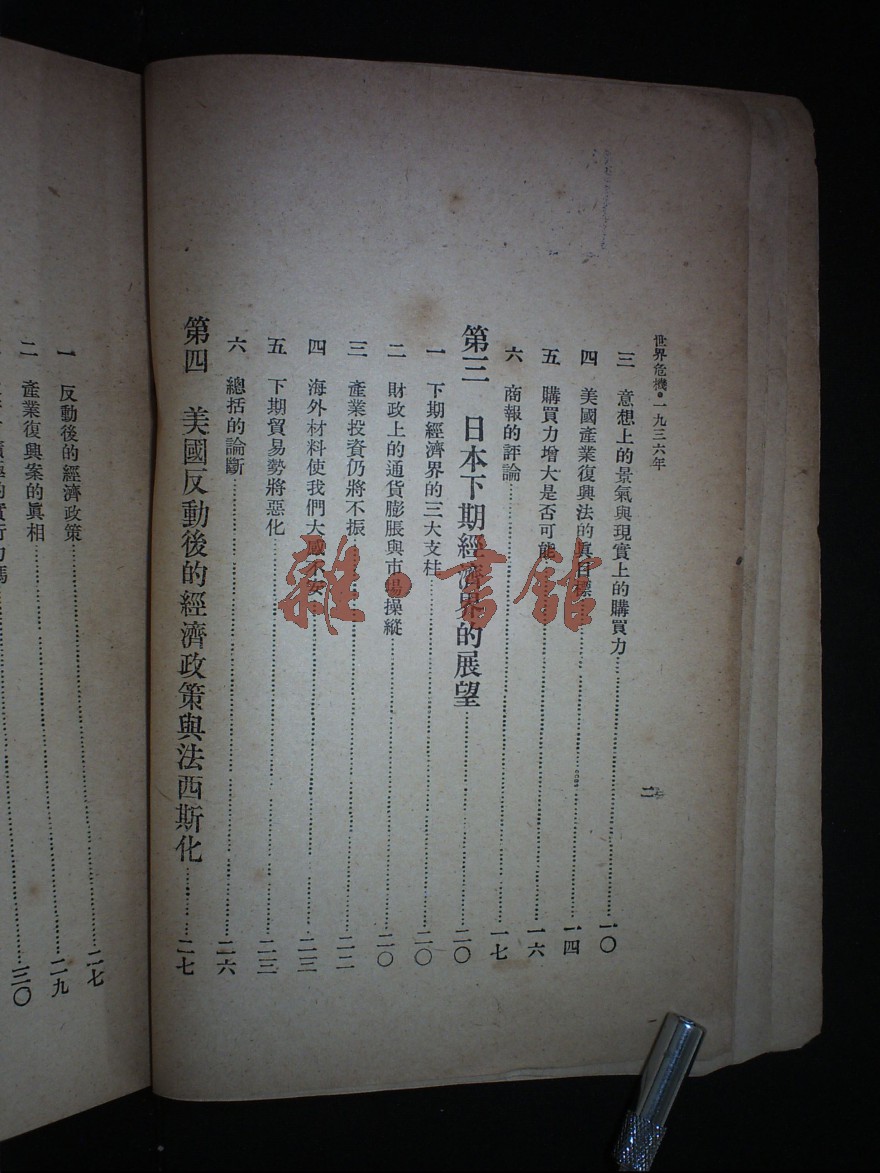 世界危機・一九三六年
二
三 意想上的景氣與現實上的購買力……一〇
四 美國產業復興法的眞目標……一四
五 購買力增大是否可能……一六
六 商報的評論……一七
第三 日本下期經濟界的展望……二〇
一 下期經濟界的三大支柱……二〇
二 財政上的通貨膨脹與市場操縱……二〇
三 產業投資仍將不振……二二
四 海外材料使我們大感不安……二三
五 下期貿易勢將惡化……二三
六 總括的論斷……二六
第四 美國反動後的經濟政策與法西斯化……二七
一 反動後的經濟政策……二七
二 產業復興案的眞相……二九
三〇
雜·書館